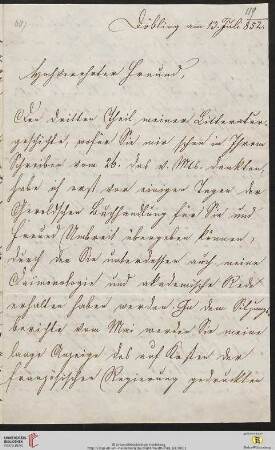 119
Döbling am 13 Juli 852.
Hochverehrter Freund,
Den dritten Theil meiner Litteratur-
geschichte, wofür Sie mir schon in Ihrem
Schreiben vom 26. des v. Mts. dankten,
habe ich erst vor einigen Tagen der
Gerold'schen Buchhandlung für Sie und
Freund Umbreit übergeben können,
durch den Sie unterdessen auch meine
und akademische Rede
erhalten haben werden. In dem Sitzungs-
berichte vom Mai werden Sie meine
lange Anzeige des auf Kosten der
französischen Regierung gedruckten
UNIVERSITÄTS-
BIBLIOTHEK
HEIDELBERG
© Universitätsbibliothek Heidelberg